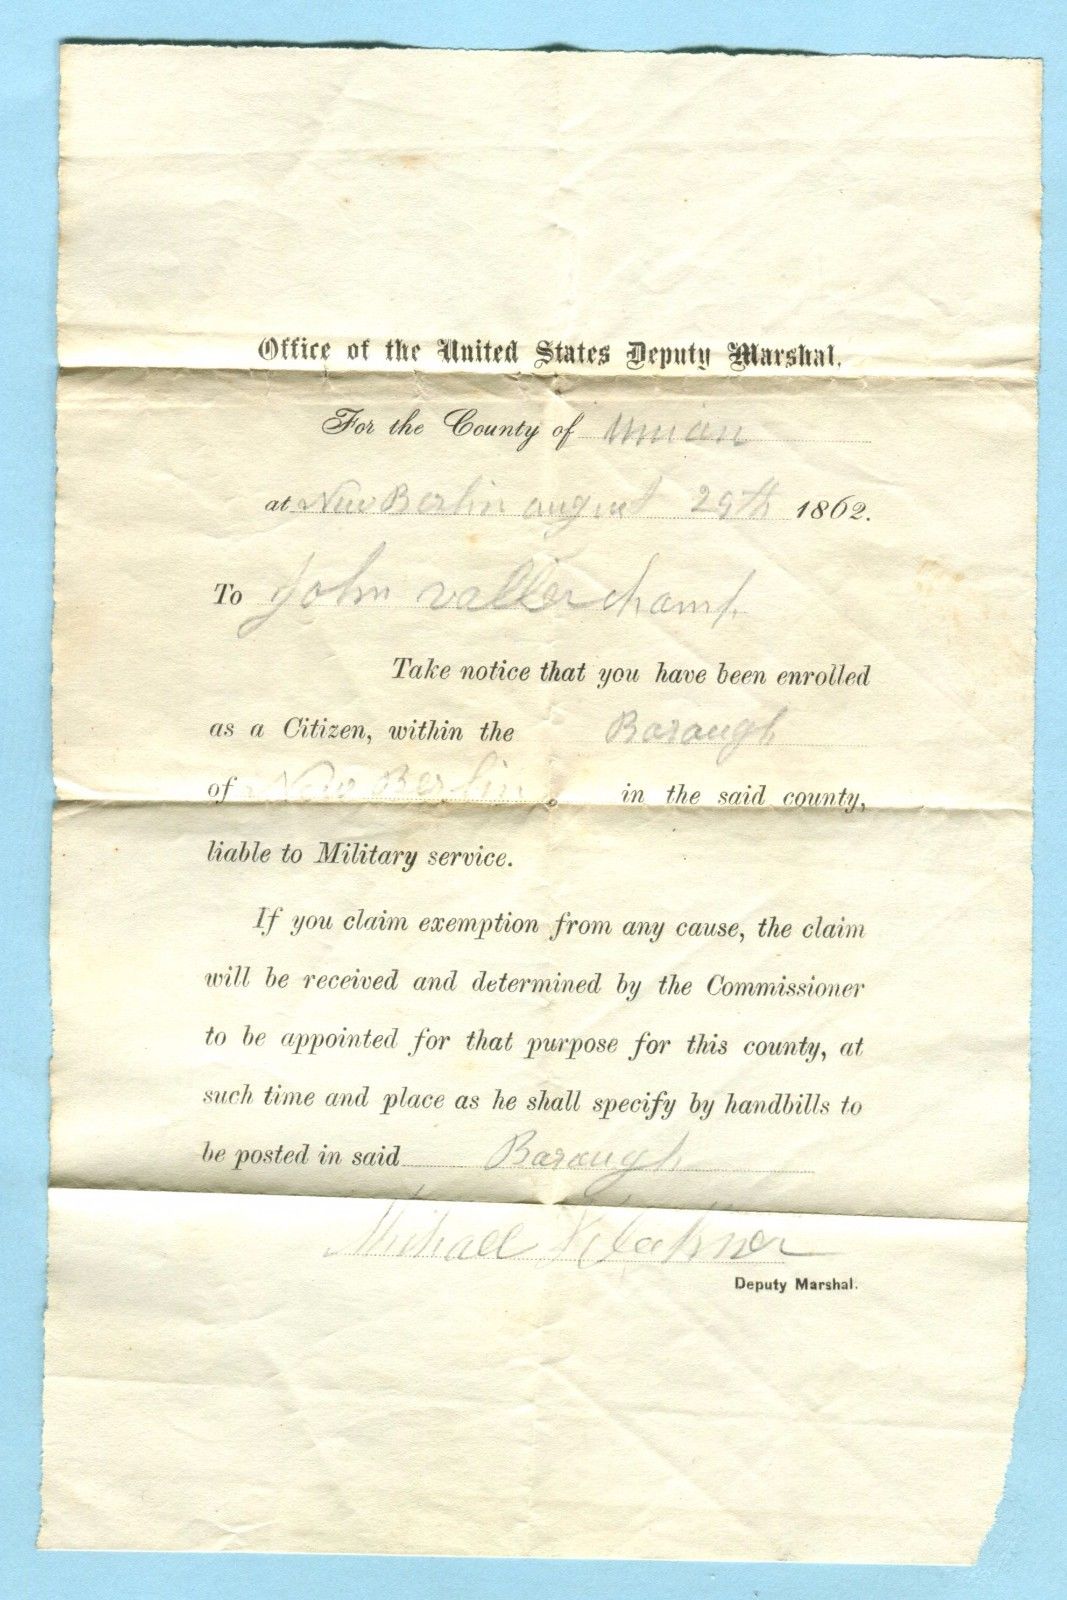 Office of the United States Deputy Marshal.
For the County of Union
at New Berlin august 29th 1862.
To John Vallerchamp
Take notice that you have been enrolled
as a Citizen, within the Barough
of New Berlin in the said county,
liable to Military service.
If you claim exemption from any cause, the claim
will be received and determined by the Commissioner
to be appointed for that purpose for this county, at
such time and place as he shall specify by handbills to
be posted in said Barough
Michael
Deputy Marshal.